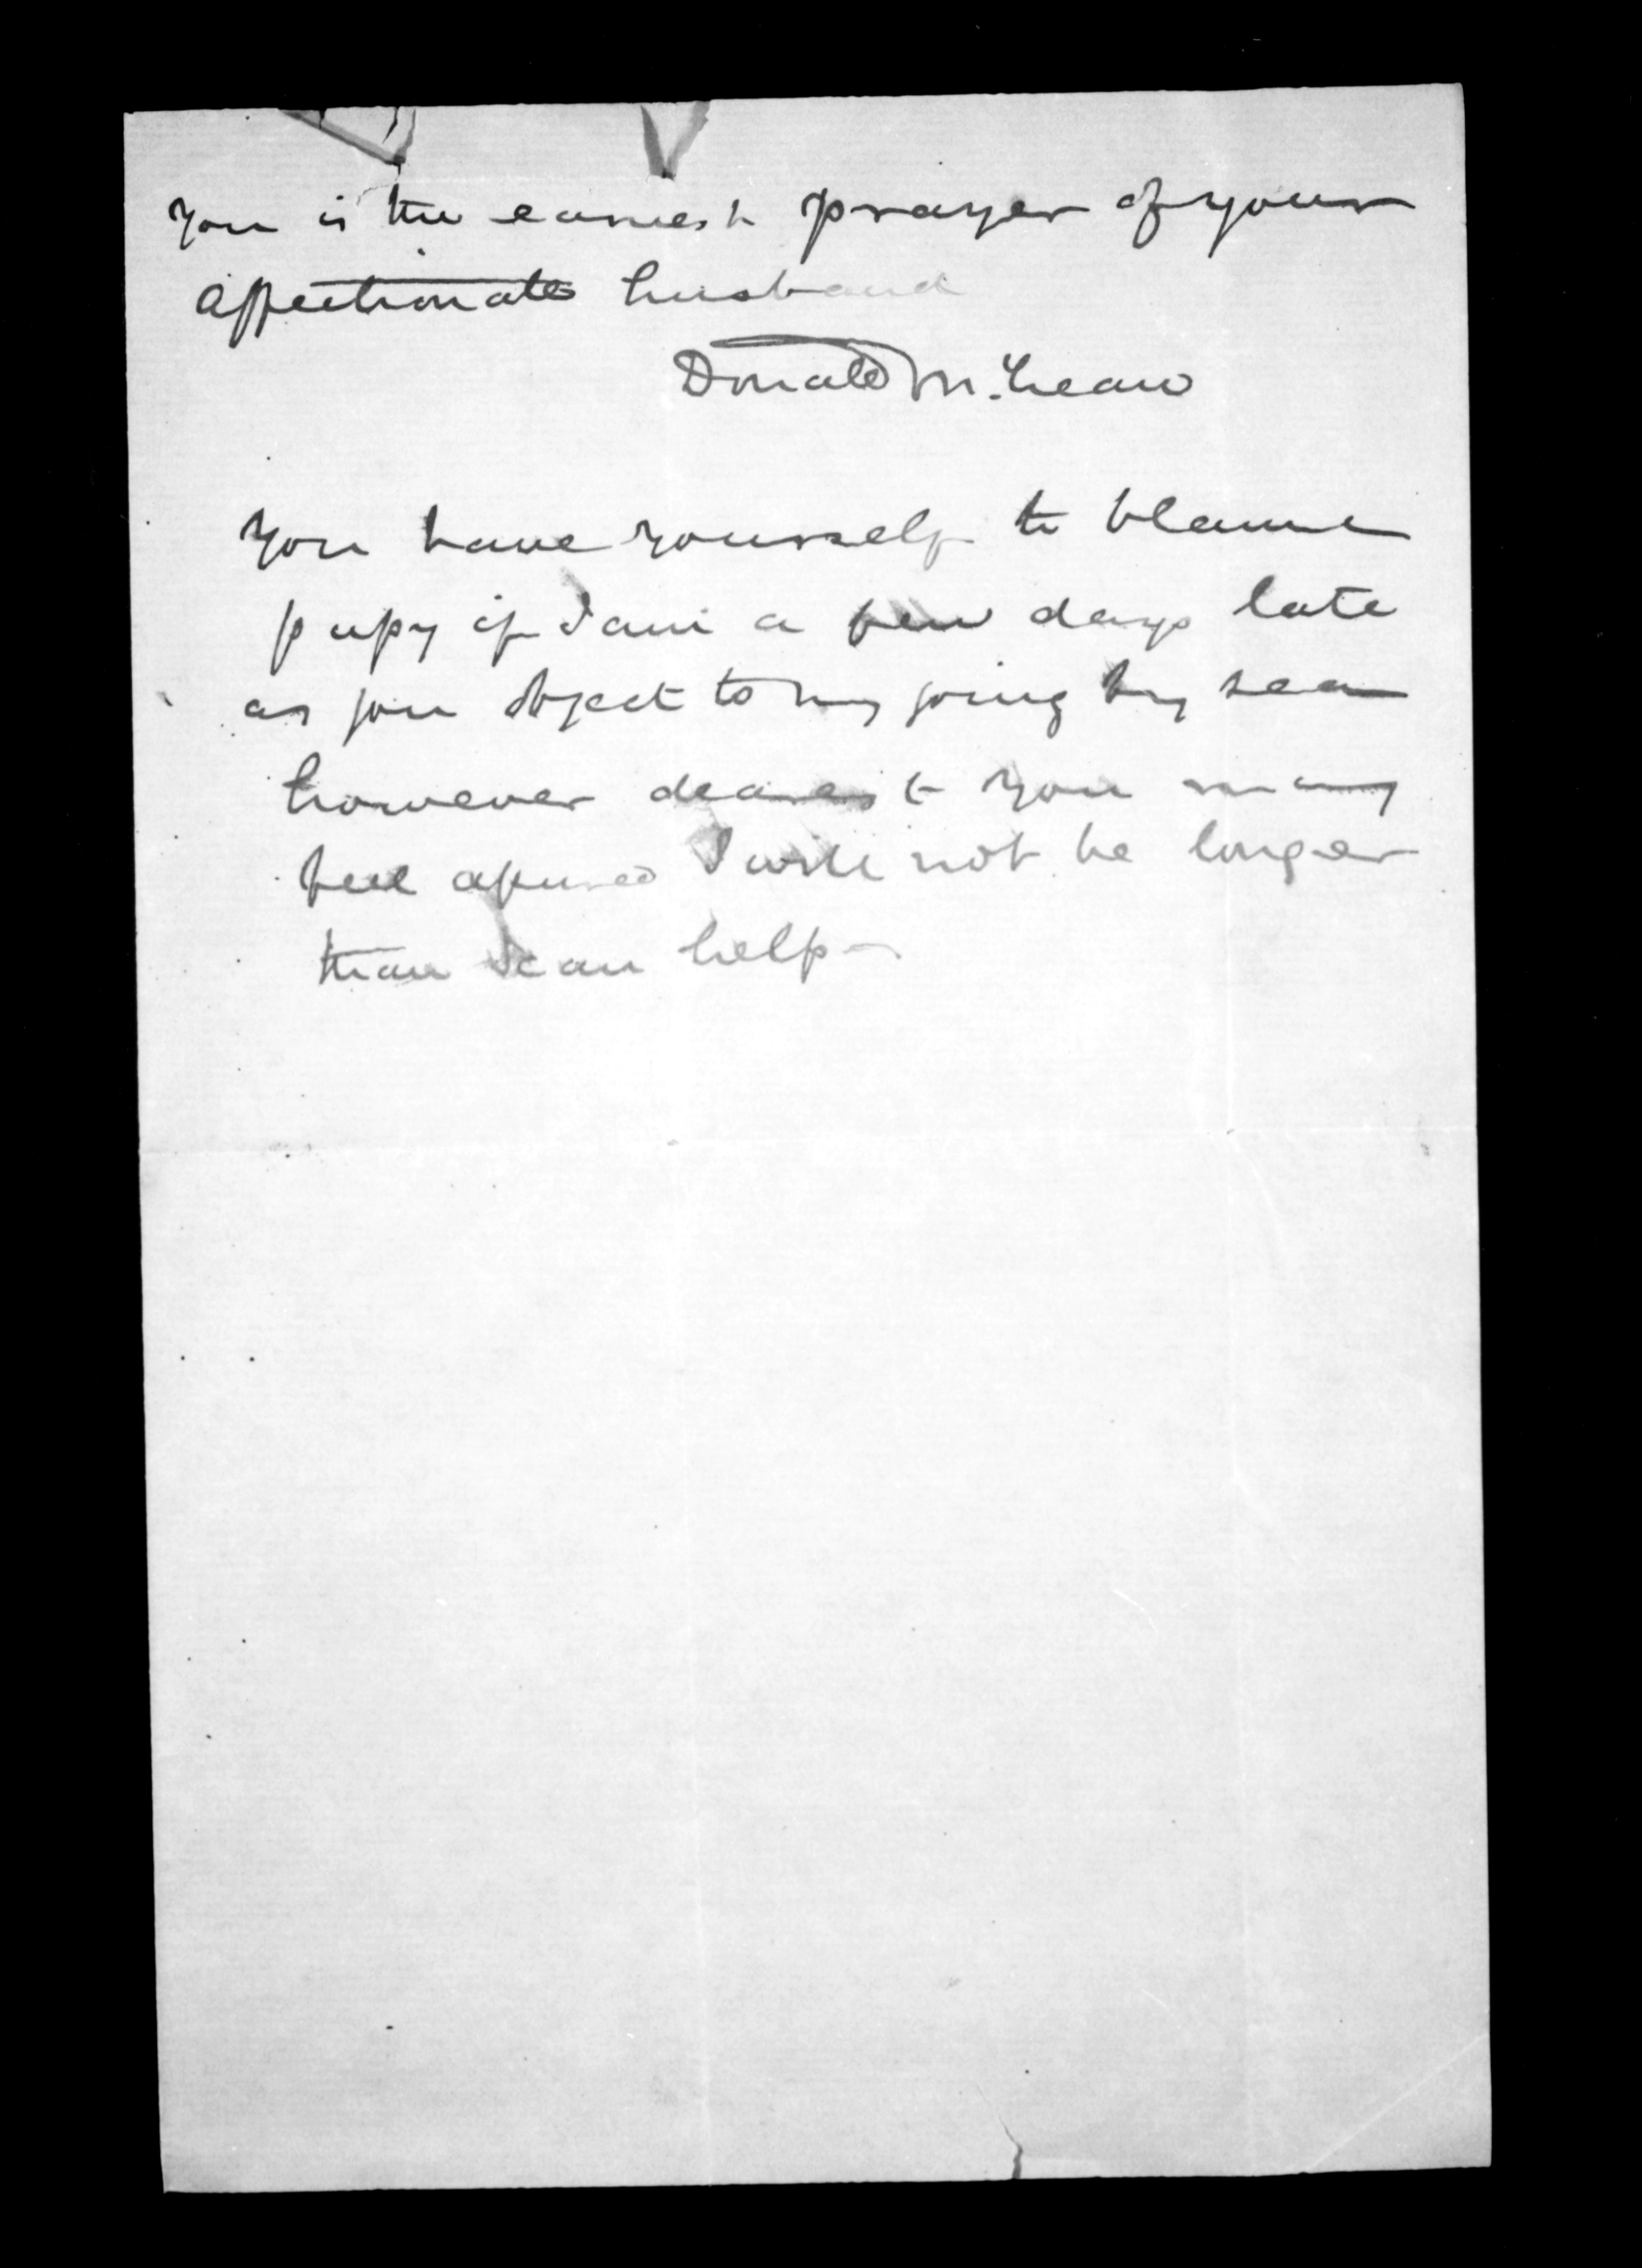 you is the earnest prayer of your
affectionate husband
Donald McLean
You have yourself to blame
pupy if I am a few days late
as you object to my going by sea
however dearest you may
feel asured I will not be longer
than I can help